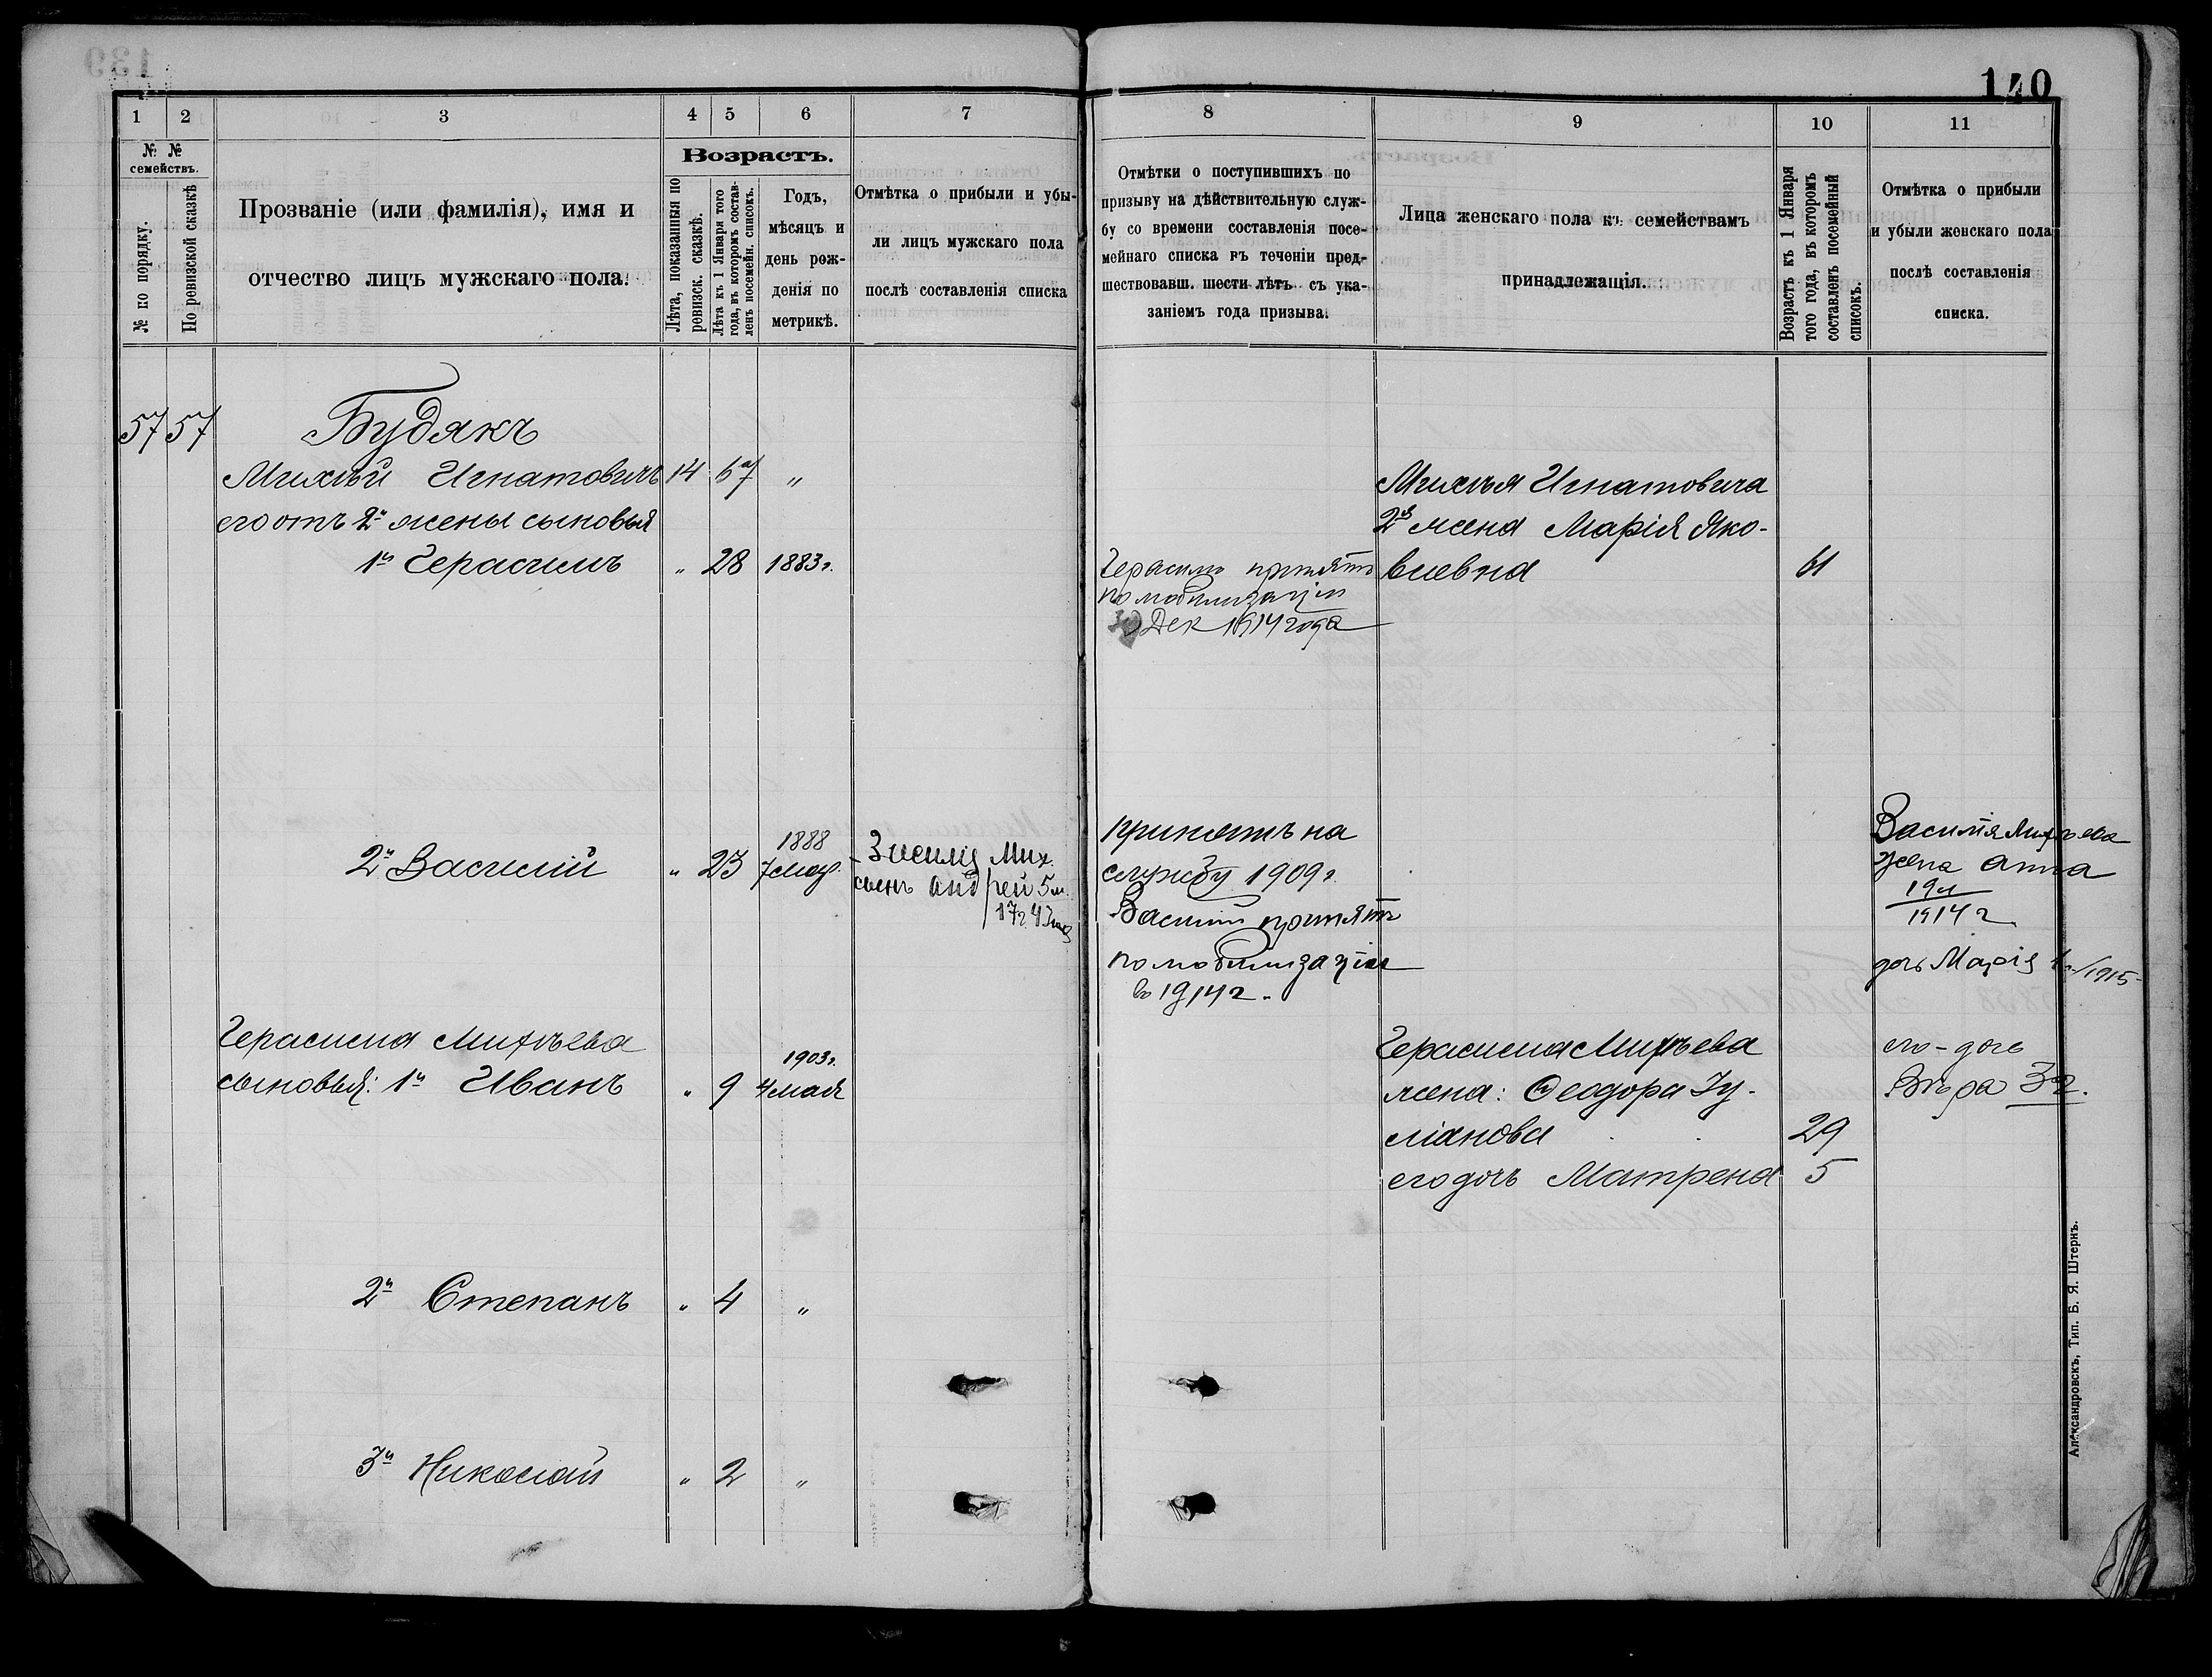 140
1 2 3 4 5 6 7
№ № семействъ.
№ по порядку.
По ревизской сказкѣ
Прозваніе (или фамилія), имя и
отчество лицъ мужскаго пола.
Возрастъ.
Лѣта, показанныя по
ревизск. сказкѣ.
Лѣта къ 1 Января того
года, въ которомъ состав-
ленъ посемейн. списокъ.
Годъ,
мѣсяцъ и
день рож-
денія по
метрикѣ.
Отмѣтка о прибыли и убы-
ли лицъ мужскаго пола
послѣ составленія списка
57 57 Будякъ
Михѣй Игнатовичъ 14 67 "
его отъ 2й жены сыновья
1й Герасимъ " 28 1883г.
1888
2й Василій " 23 7 мар.
Мих.
сынъ Андрей 5 м.
Герасима Михѣева
1903г.
сыновья: 1й Иванъ " 9 4 мая
2й Степанъ " 4 "
3й Николай " 2 "
8 9 10 11
Отмѣтки о поступившихъ по
призыву на дѣйствительную служ-
бу со времени составленія посе-
мейнаго списка въ теченіи пред-
шествовавш. шести лѣтъ съ ука-
заніемъ года призыва.
Лица женскаго пола къ семействамъ
принадлежащія.
Возрастъ къ 1 Января
того года, въ которомъ
составленъ посемейный
списокъ.
Отмѣтка о прибыли
и убыли женскаго пола
послѣ составленія
списка.
Михѣя Игнатовича
2я жена Марія Яко-
влевна 61
Герасимъ принятъ
по мобилизаціи
Дек 1914 года
принятъ на
службу 1909г.
Василій принятъ
по мобилизаціи
въ 1914г.
Василія Михѣева
жена Анна
19 л
1914 г
дочь Марія 1915
Герасима Михѣева
жена: Ѳеодора Іу-
ліанова 29
его дочь Матрена 5
его - дочь
Вѣра 3 г.
Александровскъ, Тип. Б. Я. Штернъ.